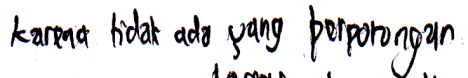 karena tidak ada yang perpotongan